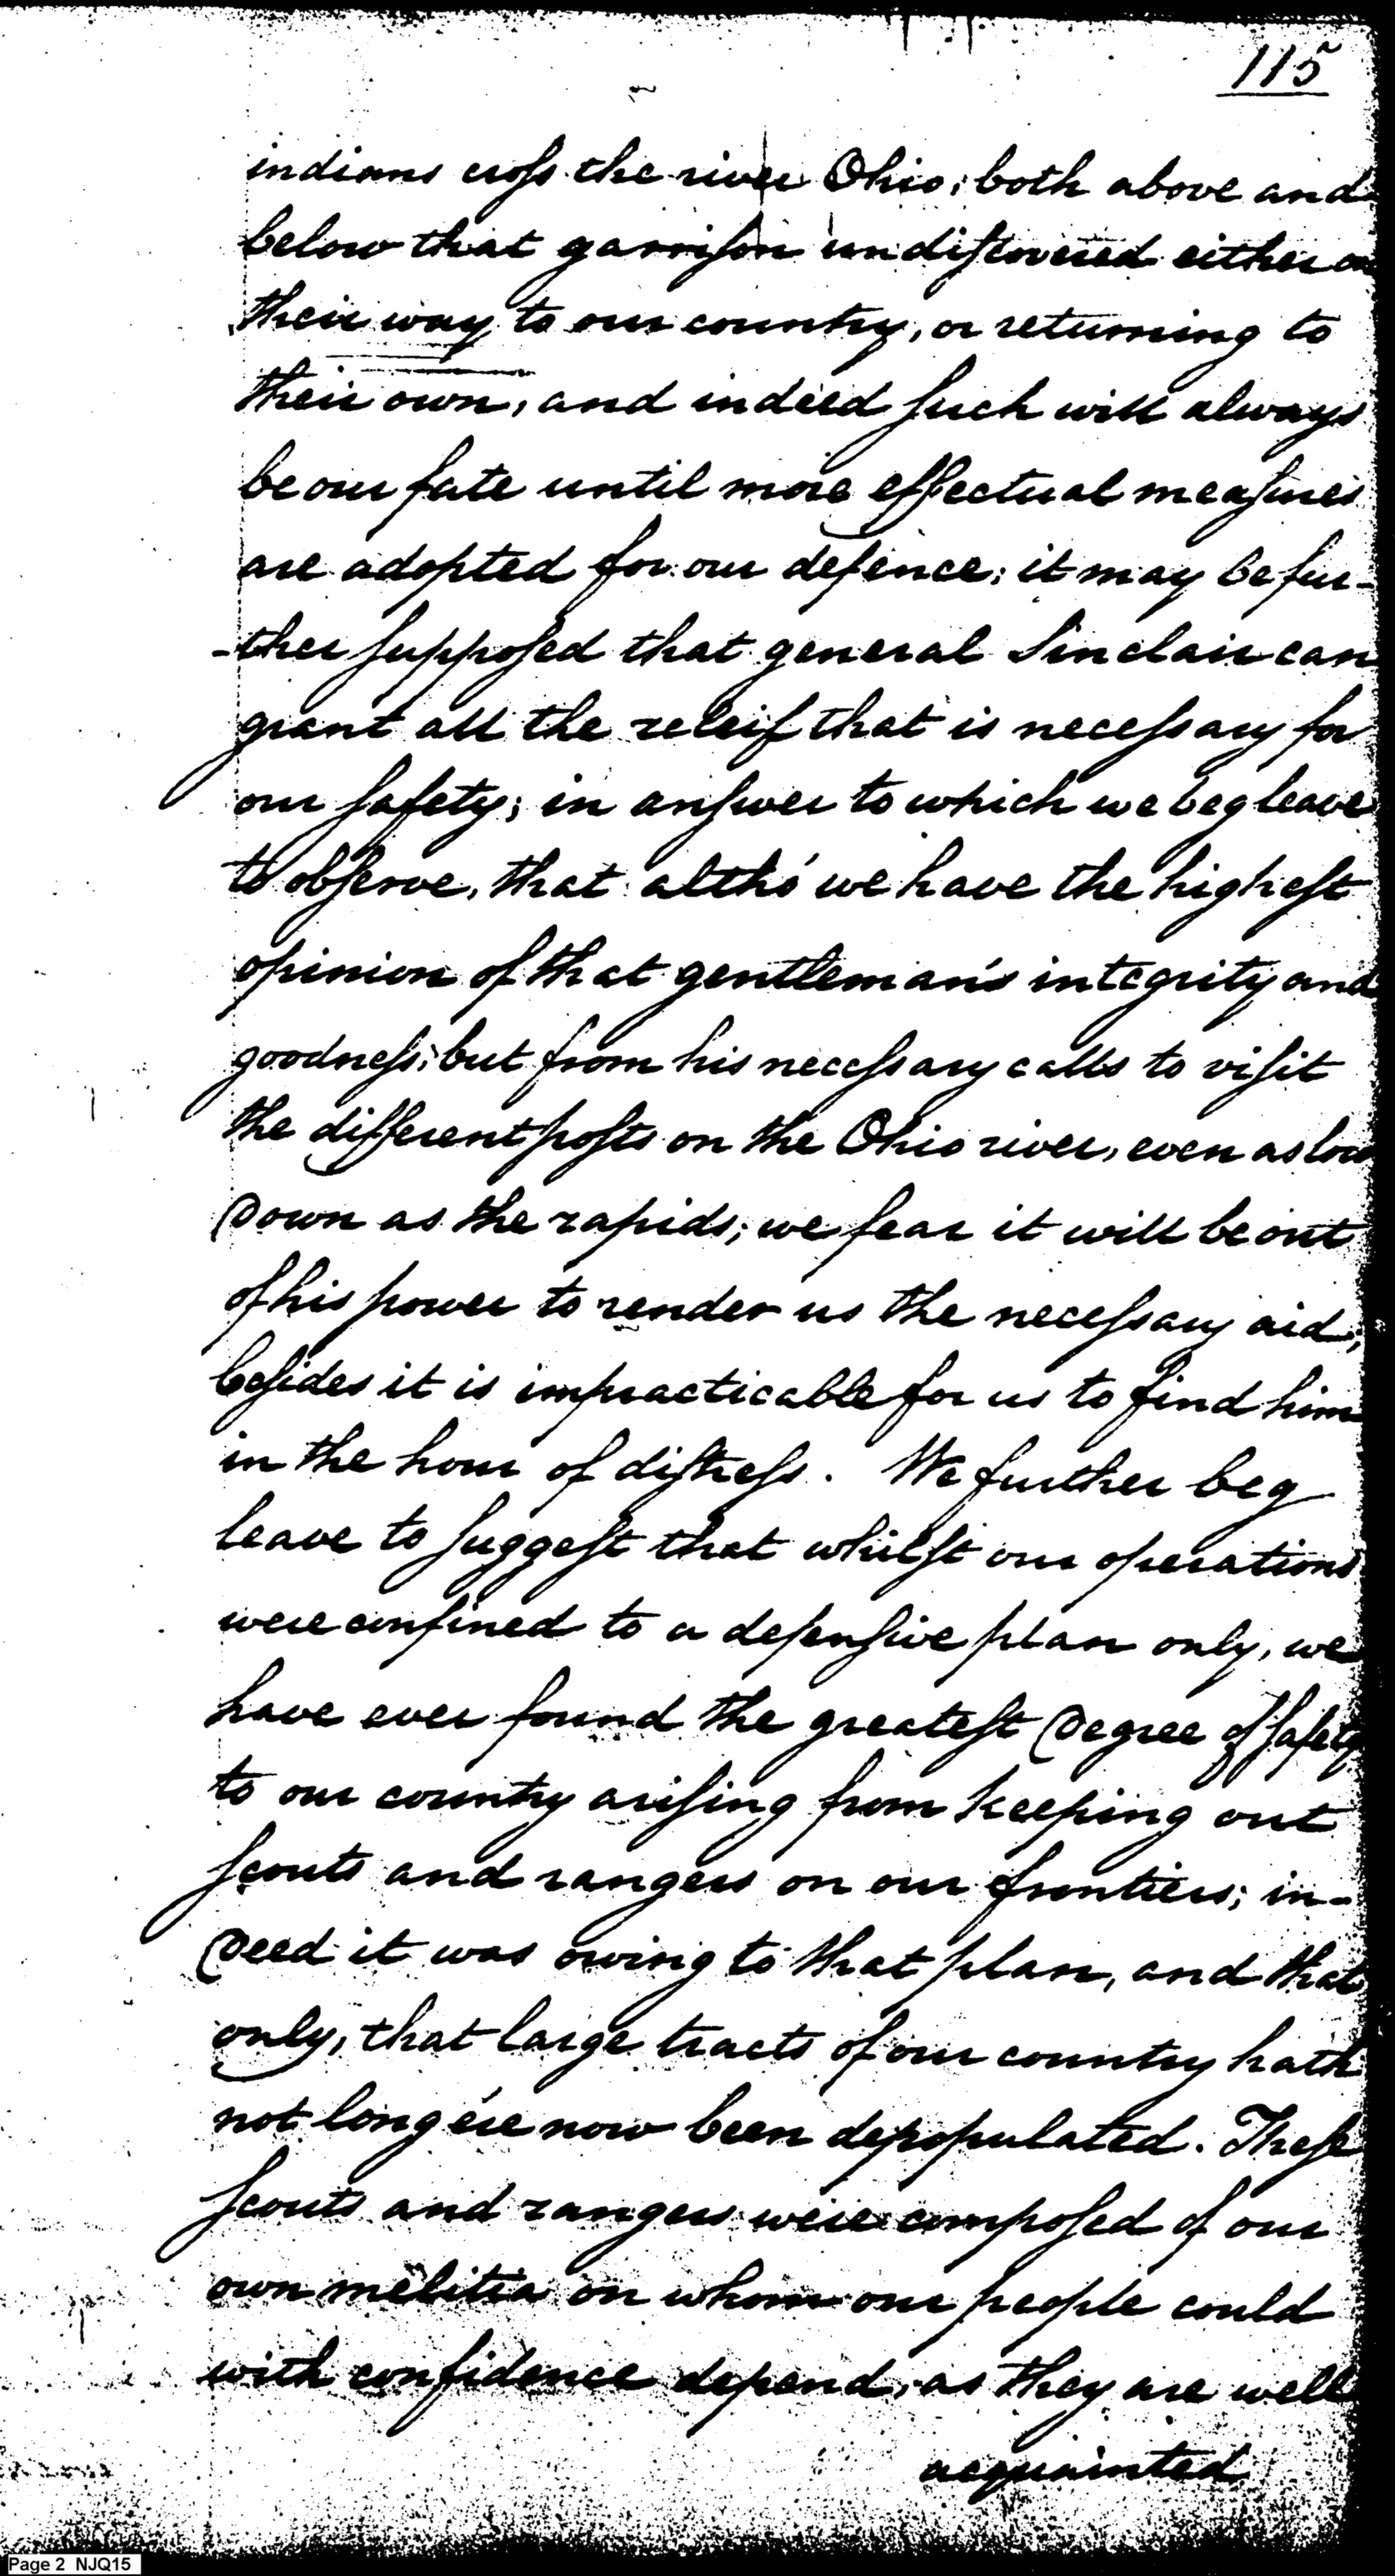 115
indians cross the river Ohio, both above and
below that garrison undiscovered either on
their way to our country, or returning to
their own, and indeed such will always
be our fate until more effectual measures
are adopted for our defence; it may be fur-
-ther supposed that general Sinclair can
grant all the releif that is necessary for
our safety; in answer to which we beg leave
to observe, that altho' we have the highest
opinion of that gentleman's integrity and
goodness; but from his necessary calls to visit
the different posts on the Ohio river, even as low
Down as the rapids; we fear it will be out
of his power to render us the necessary aid;
besides it is impracticable for us to find him
in the hour of distress. We further beg
leave to suggest that whilst our operations
were confined to a defensive plan only, we
have ever found the greatest Degree of safety
to our country arising from keeping out
scouts and rangers on our frontiers; in-
Deed it was owing to that plan, and that
only, that large tracts of our country hath
not long ere now been depopulated. These
scouts and rangers were composed of our
own melitia on whom our people could
with confidence depend, as they are well
acquainted
Page 2 NJQ15